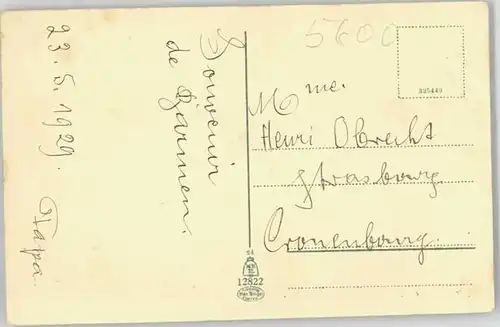 23.5.1929.
Souvenir
de Barmen.
Papa.
5600
Mme.
Henri Obrecht
Strasbourg
Cronenbourg.
12822